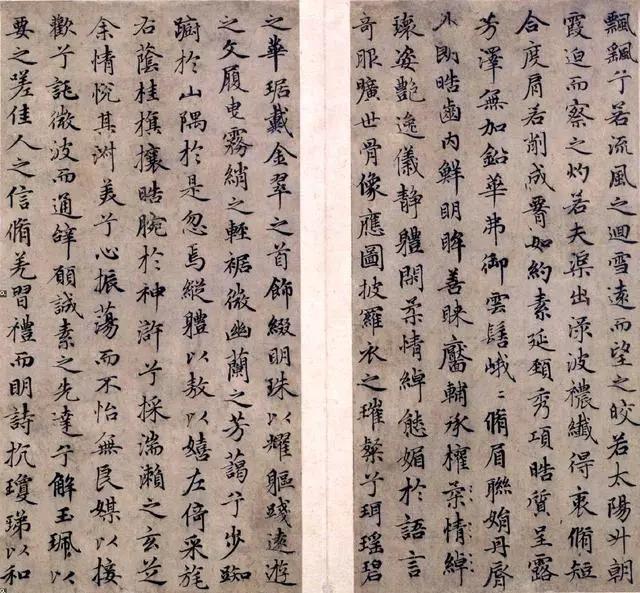 飄飄兮若流風之迴雪遠而望之皎若太陽升朝
霞迫而察之灼若夫渠出淥波穠纖得衷脩短
合度肩若削成腰如約素延頸秀項皓質呈露
芳澤無加鉛華弗御雲髻峨〻脩眉聯娟丹脣
外朗皓齒內鮮明眸善睞靨輔承權柔情綽
瓌姿艷逸儀靜體閑柔情綽態媚於語言
奇服曠世骨像應圖披羅衣之璀粲兮珥瑤碧
之華琚戴金翠之首飾綴明珠以耀軀踐遠遊
之文履曳霧綃之輕裾微幽蘭之芳藹兮步踟
躕於山隅於是忽焉縱體以敖以嬉左倚采旄
右蔭桂旗攘皓腕於神滸兮採湍瀨之玄芝
余情悅其淑美兮心振蕩而不怡無良媒以接
歡兮託微波而通辭願誠素之先達兮解玉珮以
要之嗟佳人之信脩羌習禮而明詩抗瓊珶以和